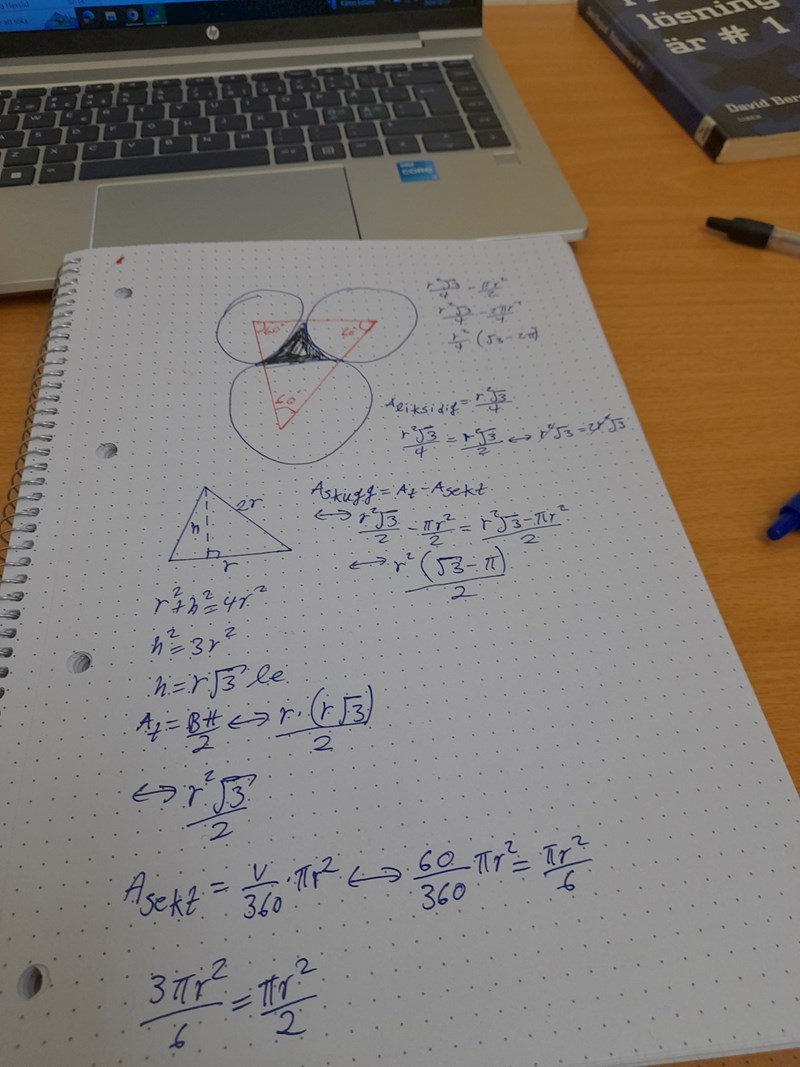 hp
intel
CORE
lösning
är # 1
David Ber
60°
60°
60°
r²√3/4 - πr²/2
r²√3/4 - 2πr²/4
r²/4 (√3 - 2π)
Aliksidig = r²√3/4
r²√3/4 = r²√3/2 ↔ r²√3 = 2r²√3
h
2r
r
Askugg = At - Asekt
↔ r²√3/2 - πr²/2 = r²√3 - πr²/2
↔ r² (√3 - π)/2
r² + h² = 4r²
h² = 3r²
h = r√3 le
At = BH/2 ↔ r · (r√3)/2
↔ r²√3/2
Asekt = v/360 · πr² ↔ 60/360 πr² = πr²/6
3πr²/6 = πr²/2